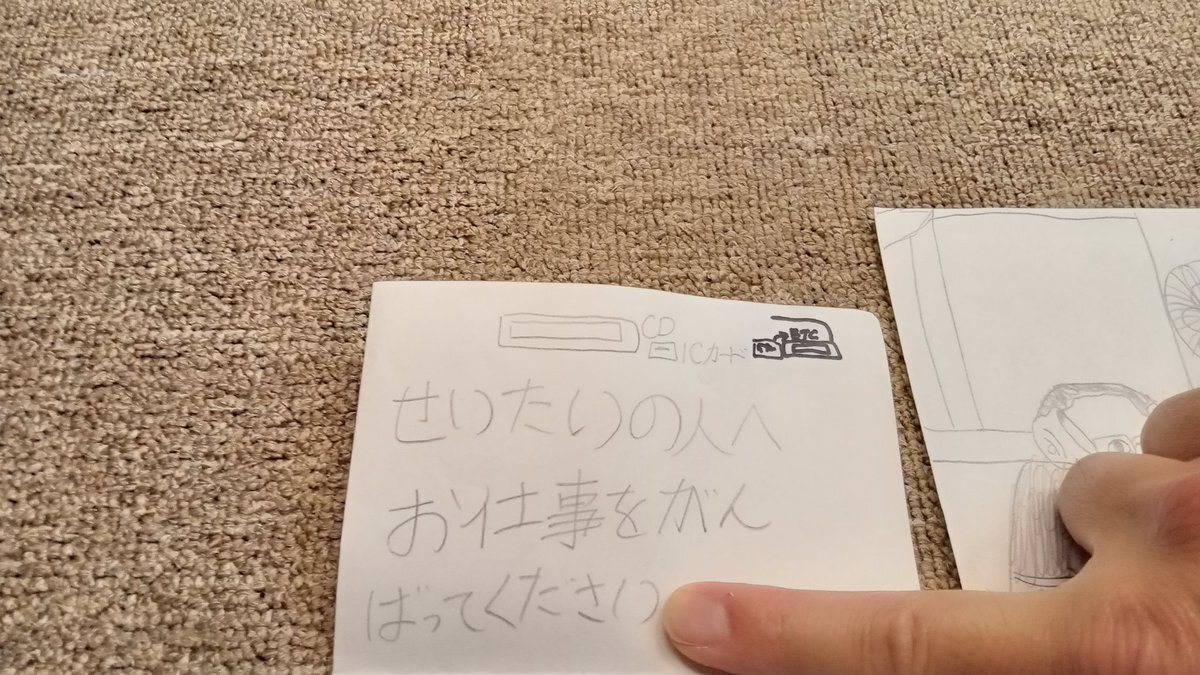 CD
ICカード
ETC
せいたいの人へ
お仕事をがん
ばってください